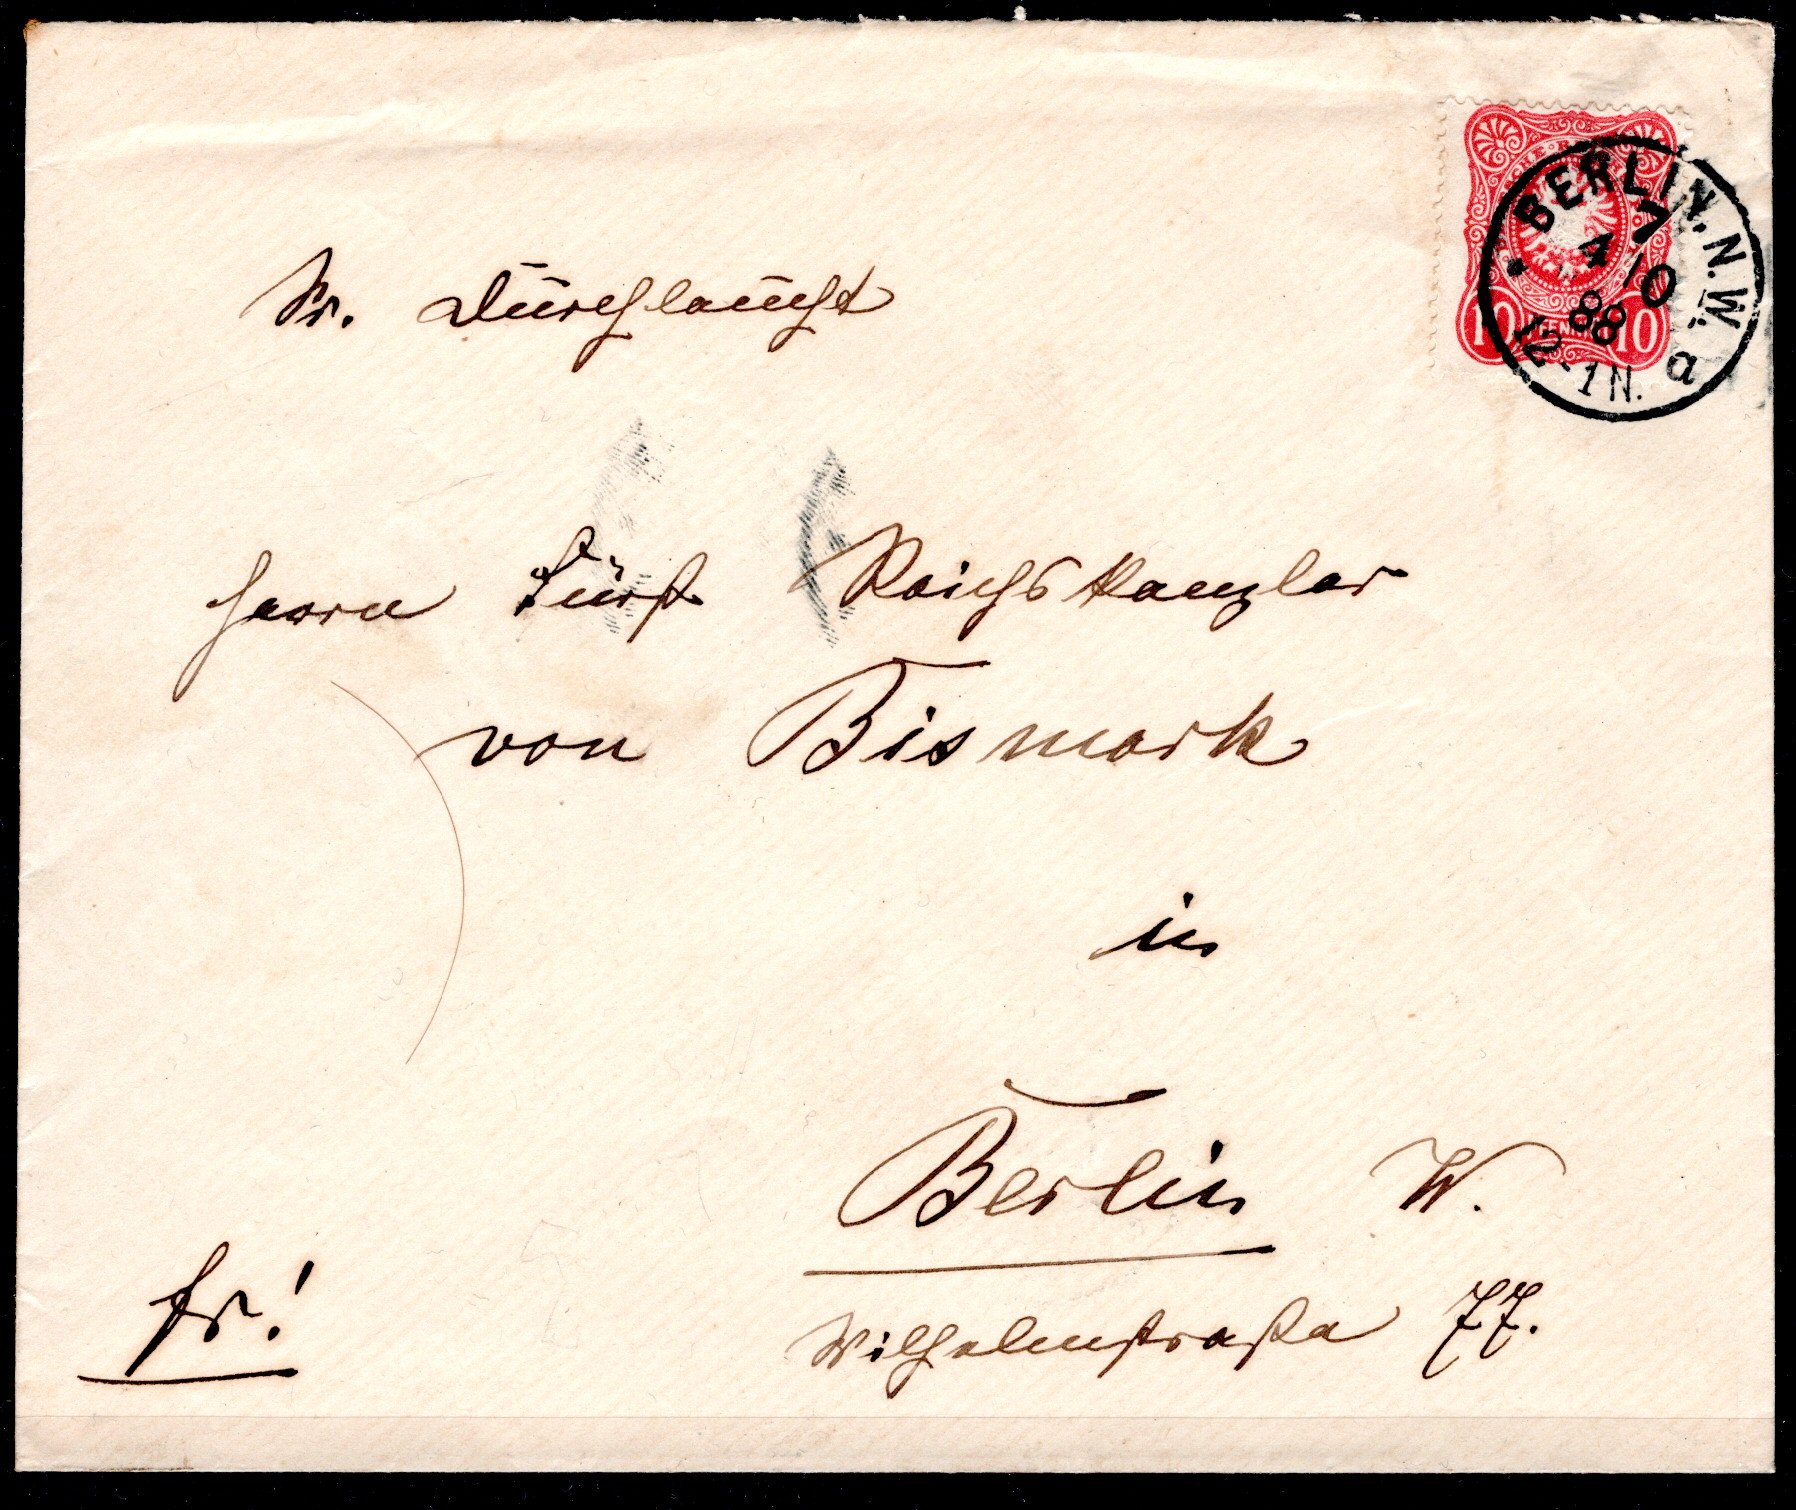 BERLIN.N.W.
7
10
88
12-1N.
a
10 PFENNIG 10
Sr. Durchlaucht
Herrn Fürst Reichskanzler
von Bismark
in
Berlin W.
fr!
Wilhelmstraße 77.